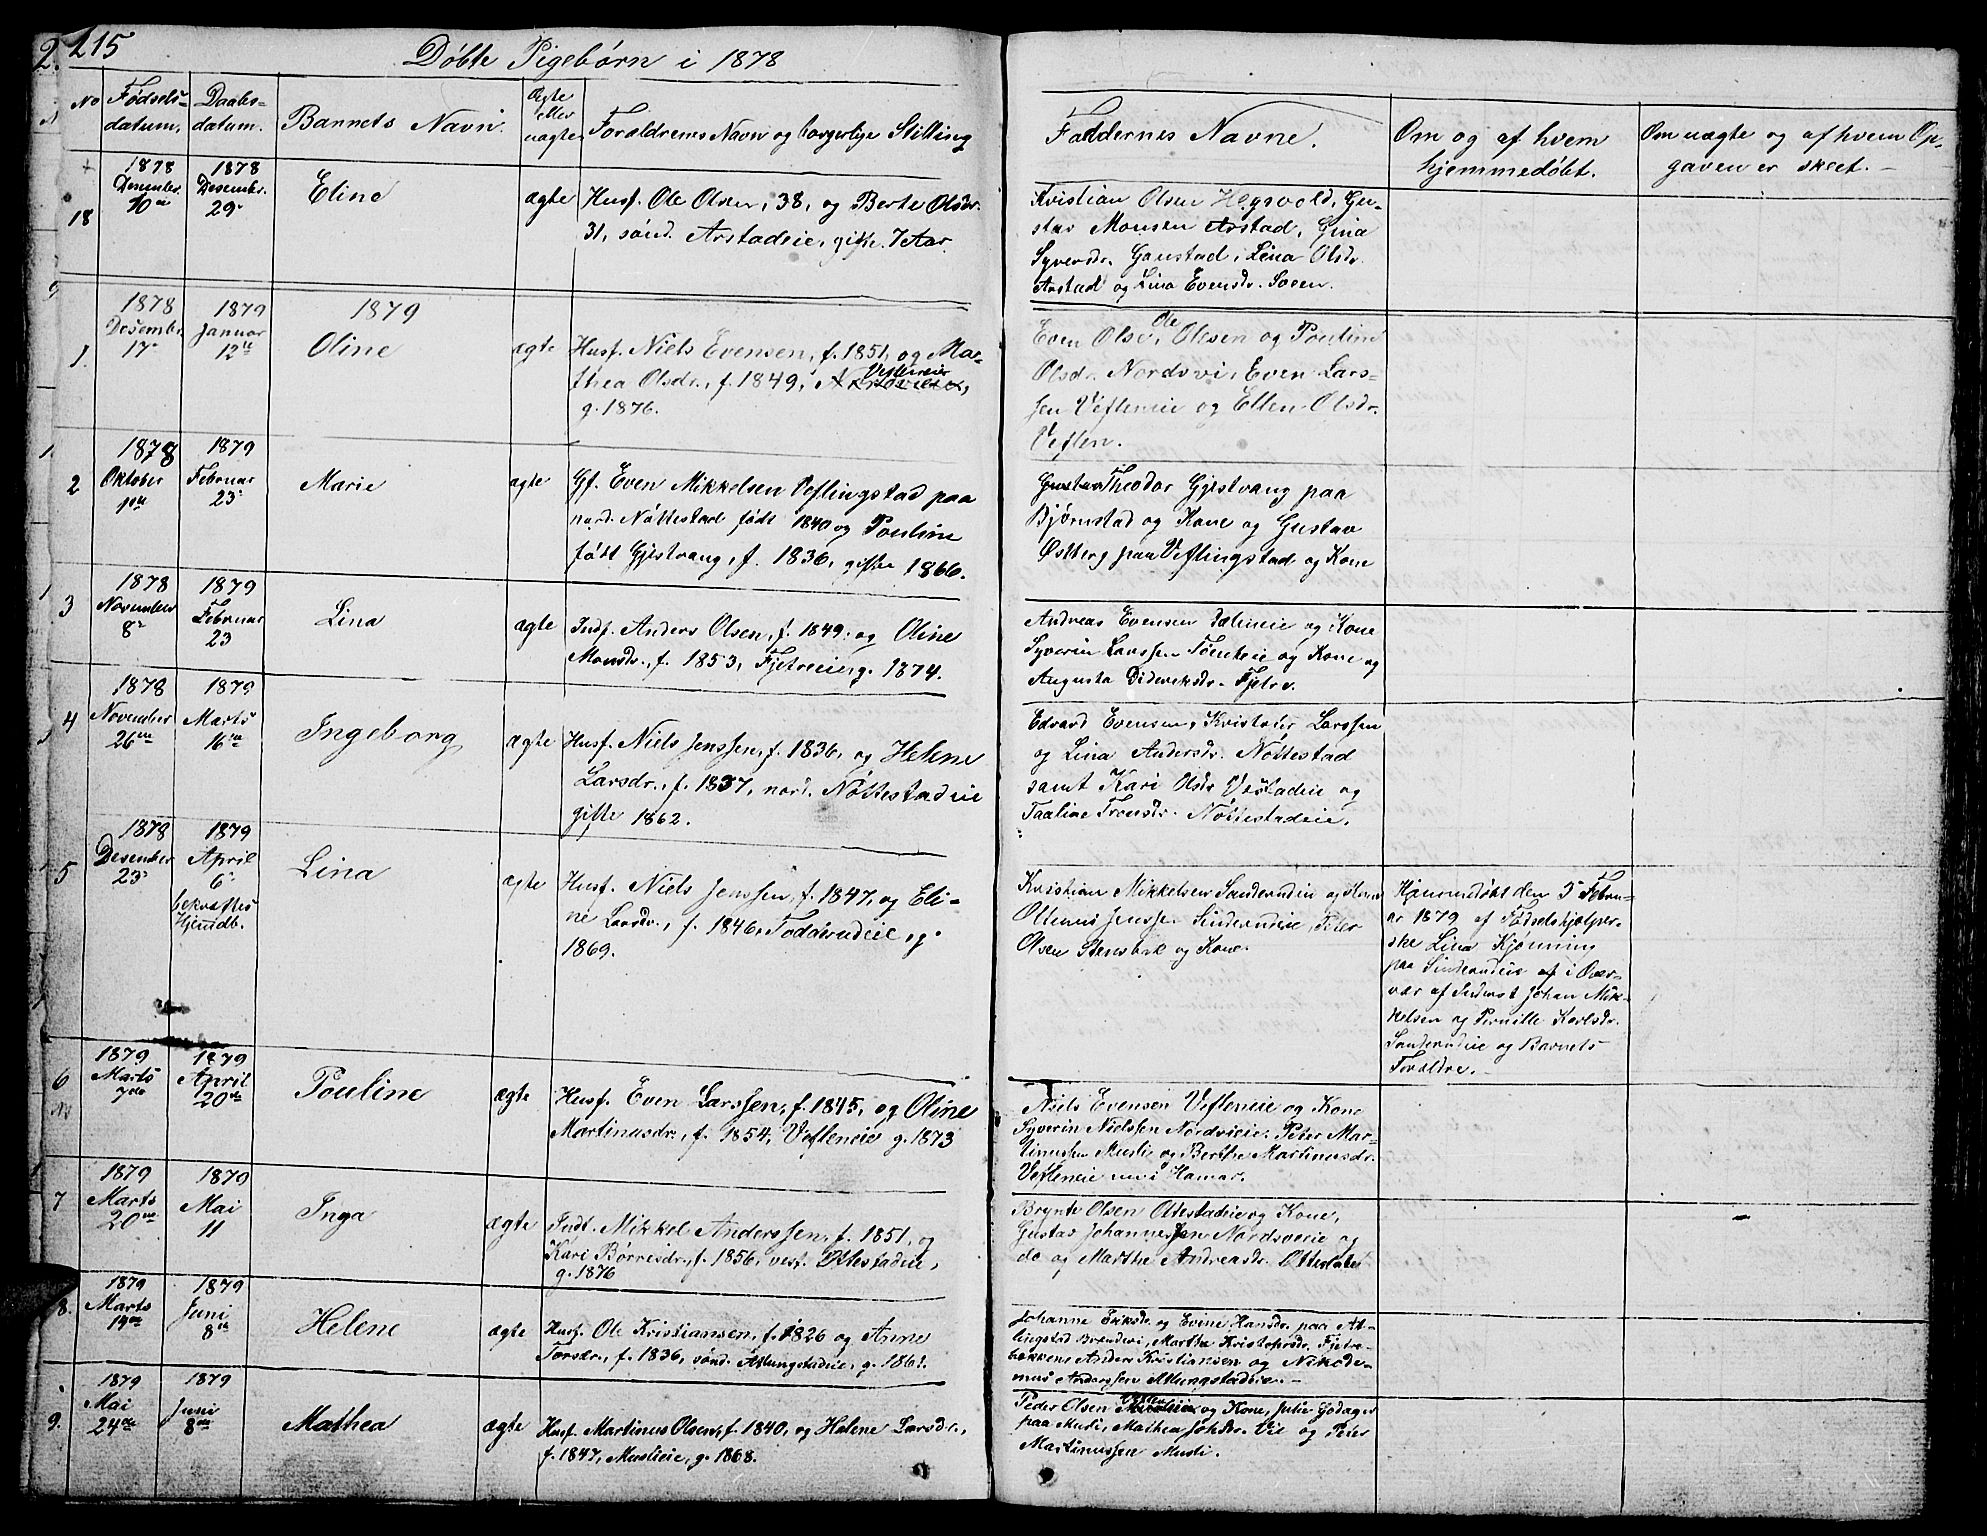 215
Døbte Pigebørn i 1878
No
Fødsels-
datum.
Daabs-
datum.
Barnets Navn.
Ægte
eller
uægte
Forældrenes Navn og borgerlige Stilling
Faddernes Navne.
Om og af hvem
hjemmedøbt.
Om uægte og af hvem Op-
gaven er skeet.
18
1878
Desember
10de
1878
Desember
29de
Eline
ægte
Husf. Ole Olsen, 38, og Berte Olsdr.
31, sønd. Arstadeie, gifte 7 Aar.
Kristian Olsen Hegsvold, Gu-
stav Monsen Arstad, Gina
Syversdr. Gaustad, Lina Olsdr.
Arstad og Lina Evensdr. Soen.
1879
1.
1878
Desember
17de
1879
Januar
12te
Oline
ægte
Husf. Niels Evensen, f. 1851, og Ma-
thea Olsdr., f. 1849, Vefleneie
g. 1876.
Even Olse, Ole Olsen og Pouline
Olsdr. Nordsvi, Even Lars-
sen Vefleneie og Ellen Olsdr.
Veflen.
2
1878
Oktober
1ste
1879
Februar
23de
Marie
ægte
Gf. Even Mikkelsen Veflingstad paa
nord. Nøttestad født 1840 og Pouline
født Gjestvang, f. 1836, gifte 1866.
Gustav Theodor Gjestvang paa
Bjørnstad og Kone og Gustav
Østberg paa Veflingstad og Kone
3
1878
November
8de
1879
Februar
23
Lina
ægte
Indf. Anders Olsen, f. 1849, og Oline
Monsdr., f. 1853, Fjetreeie g. 1874.
Andreas Evensen Dæleneie og Kone
Syverin Larssen Tomteie og Kone og
Augusta Dideriksdr. Fjetre.
4
1878
November
26de
1879
Marts
16de
Ingeborg
ægte
Husf. Niels Jenssen, f. 1836, og Helene
Larsdr., f. 1837, nord. Nøttestadeie
gifte 1862.
Edvard Evensen, Kristofer Larssen
og Lina Andersdr. Nøttestad
samt Kari Olsdr. Vestadeie og
Taaline Tronsdr. Nøttestadeie.
5
1878
Desember
23de
1879
April
6te
bekræftes
Hjemdb.
Lina
ægte
Husf. Niels Jenssen, f. 1847, og Eli-
ne Larsdr., f. 1846, Fodderudeie, g.
1869.
Kristian Mikkelsen Sanderudeie og Kone
Ottinus Jensse Sinderudeie, Peter
Olsen Stensbæk og Kone.
Hjemmedøbt den 3de Febru-
ar 1879 af Fødselshjælper-
ske Lina Kjønning
paa Sinderudeie af i Over-
vær af Inderst Johan Mik-
kelsen og Pernille Karlsdr.
Sanderudeie og Barnets
Forældre.
6
1879
Marts
7de
1879
April
20de
Pouline
ægte
Husf. Even Larssen, f. 1845, og Oline
Martinusdr., f. 1854, Vefleneie g. 1873
Niels Evensen Vefleneie og Kone
Syverin Nielssen Nordsvieie. Peter Mar-
tinussen Muslie og Berthe Martinusdr.
Vefleneie nu i Hamar.
7
1879
Marts
20de
1879
Mai
11
Inga
ægte
Indt. Mikkel Anderssen, f. 1851, og
Kari Børresdr., f. 1856, vest. Ottestadeie,
g. 1876
Brynte Olsen Ottestadeie og Kone,
Gustav Johannessen Nordsveeie og
do og Marthe Andreasdr. Ottestadeie
8.
1879
Marts
14de
1879
Juni
8de
Helene
ægte
Husf. Ole Kristiansen, f. 1826 og Anne
Torsdr., f. 1836, sønd. Atlungstadeie, g. 1861.
Johanne Eriksdr. og Evine Hansdr. paa At-
lungstad Brænderi, Marthe Kristofersdr. Fjetre-
bakken, Anders Kristiansen og Nikode-
mus Anderssen Atlungstadeie.
9.
1879
Mai
24de
1879
Juni
8de
Mathea
ægte
Husf. Martinus Olsen, f. 1840, og Helene Larsdr.,
f. 1847, Muslieie, g. 1868.
Peder Olsen og Kone, Julie Godager
paa Musli, Mathea Johsdr. Vie og Peter
Martinussen Musli.